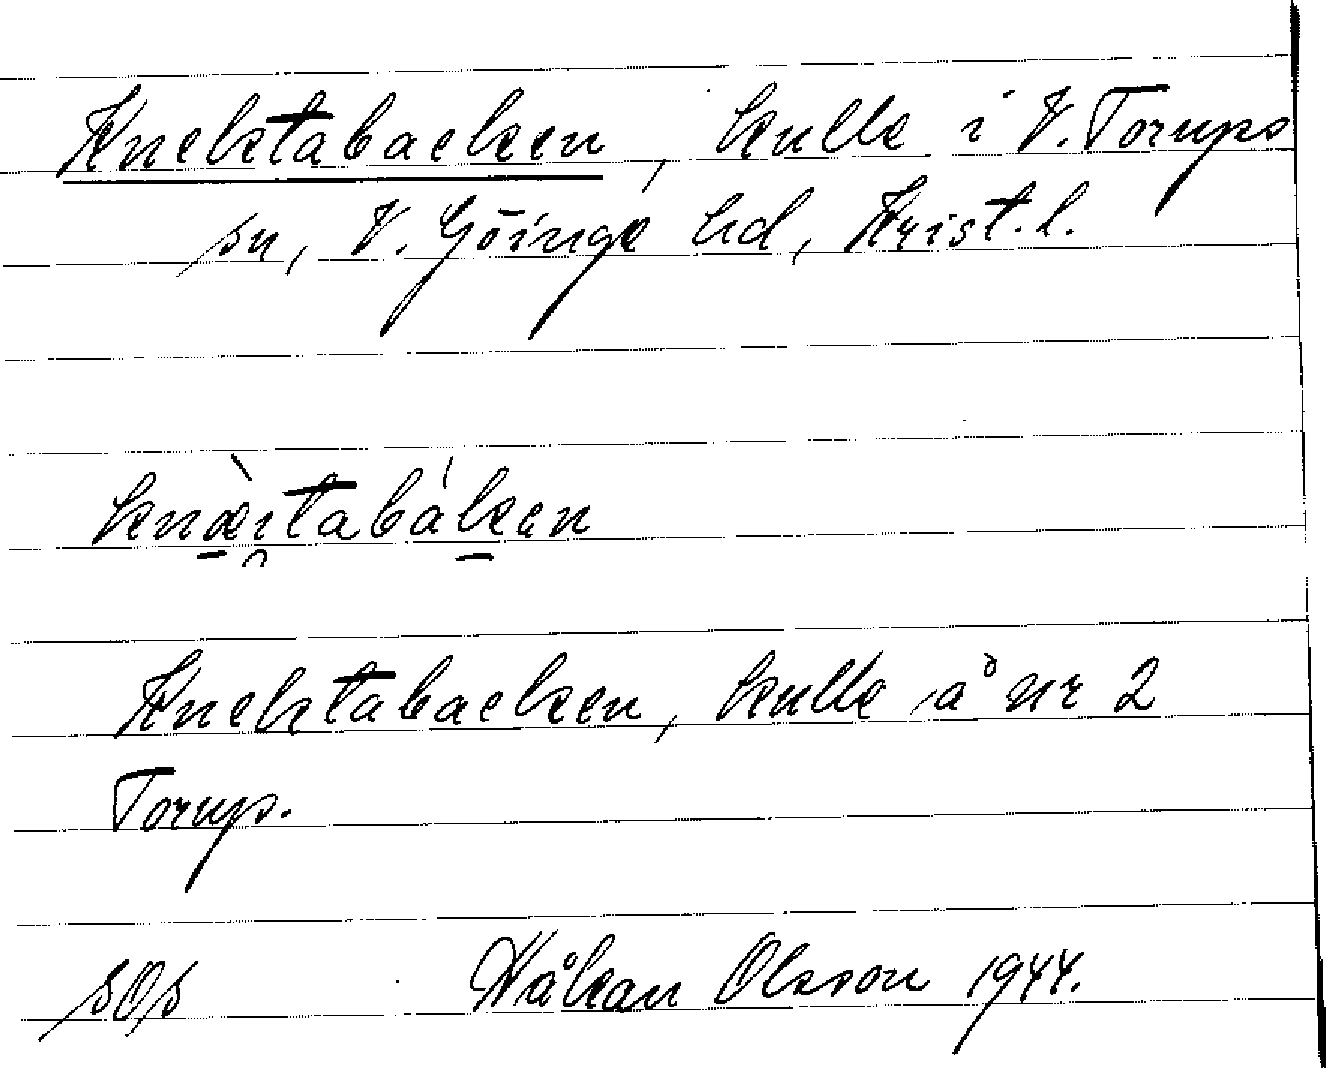 Knektabacken, kulle i V. Torups
sn, V. Göinge hd, Krist. l.
Knektabacken, kulle å nr 2
Torup.
Håkan Olsson 1944.